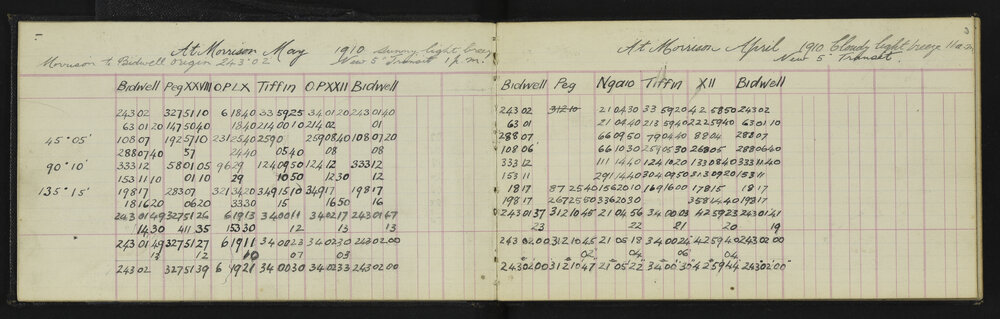 At Morrison May 1910 Sunny light breeze
Morrison to Bidwell origin 243°02 New 5" Transit 1 p.m.
Bidwell Peg XXVIII OPLX Tiffin O.P.XXII Bidwell
243 02 3275110 6 1840 33 5925 34 01 20 243 01 40
63 01 20 1475040 1840 214 00 10 214 02 01
45° 05' 108 07 1925710 231 2540 2590 2590840 1080720
2880740 57 2440 0540 08 08
90° 10' 333 12 5801 05 9629 1240950 12412 333 12
153 11 10 01 10 29 10 50 12 30 12
135° 15' 198 17 283 07 321 3420 3491510 34917 198 17
18 16 20 06 20 33 30 15 16 50 16
243 01 49 3275126 6 1913 34 00 11 34 02 17 243 01 67
14.30 411 35 15330 12 13 13
243 01 49 3275127 6 1911 34 00 23 34 02 30 243 02.00
13 12 10 07 03
243 02 3275139 6 1921 34 00 30 34 02 33 243 02 00
3
At Morrison April 1910 Cloudy light breeze 11 a.m
New 5" Transit.
Bidwell Peg Ngaio Tiffin XII Bidwell
243 02 312 10 21 04 30 33 59 20 42 58 50 243 02
63 01 21 04 40 213 59 40 222 59 40 63 01 10
288 07 66 09 50 79 04 40 88 04 288 07
108 06 66 10 30 259 05 30 268 05 288 06 40
333 12 111 14 40 124 10 20 133 08 40 333 11 40
153 11 291 14 40 304 09 50 313 09 20 153 11
18 17 87 25 40 156 20 10 169 16 00 178 15 18 17
198 17 267 25 50 336 20 30 358 14 40 198 17
243 01 37 312 10 45 21 04 56 34 00 03 42 59 23 243 01 41
23 22 21 20 19
243 02 00 312 10 45 21 05 18 34 00 24 42 59 40 243 02 00
02 04 06 04
243° 02' 00 312 10 47 21° 05' 22" 34° 00' 30 42 59 44 243° 02' 00"